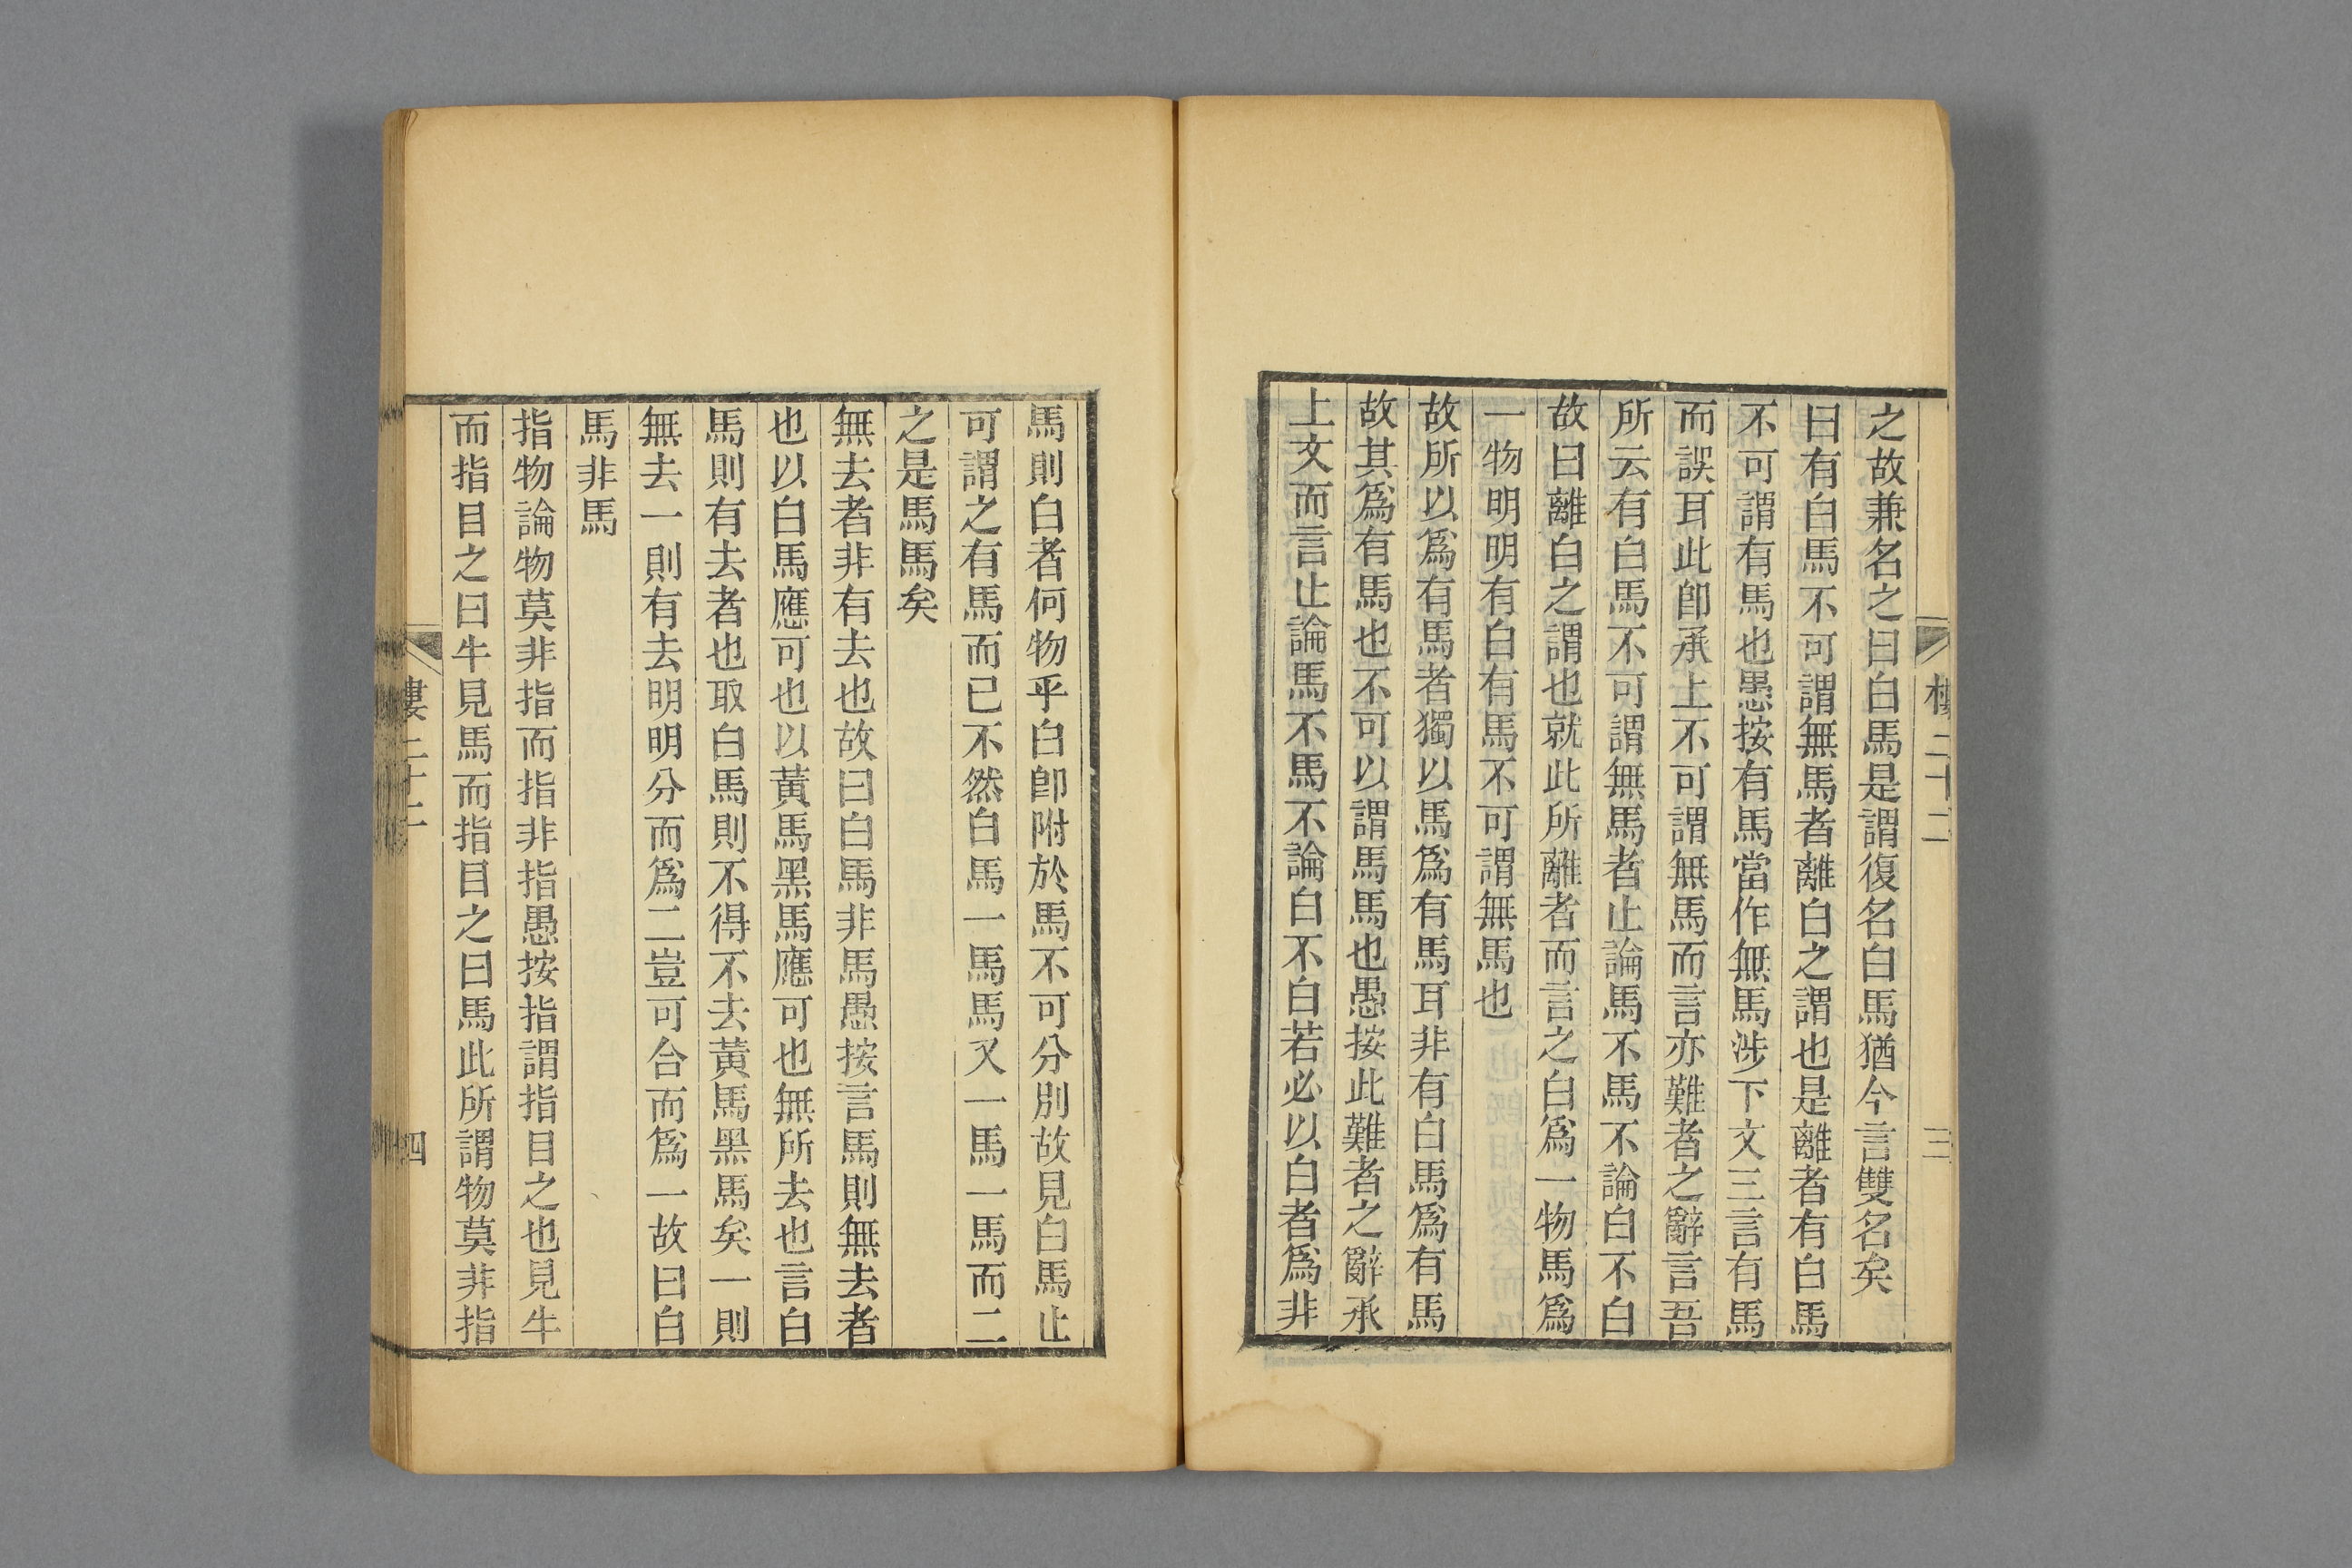 樓二十二
三
之故兼名之曰白馬是謂復名白馬猶今言雙名矣
曰有白馬不可謂無馬者離白之謂也是離者有白馬
不可謂有馬也愚按有馬當作無馬涉下文三言有馬
而誤耳此卽承上不可謂無馬而言亦難者之辭言吾
所云有白馬不可謂無馬者止論馬不馬不論白不白
故曰離白之謂也就此所離者而言之白爲一物馬爲
一物明明有白有馬不可謂無馬也
故所以爲有馬者獨以馬爲有馬耳非有白馬爲有馬
故其爲有馬也不可以謂馬馬也愚按此難者之辭承
上文而言止論馬不馬不論白不白若必以白者爲非
馬則白者何物乎白卽附於馬不可分別故見白馬止
可謂之有馬而已不然白馬一馬馬又一馬一馬而二
之是馬馬矣
無去者非有去也故曰白馬非馬愚按言馬則無去者
也以白馬應可也以黃馬黑馬應可也無所去也言白
馬則有去者也取白馬則不得不去黃馬黑馬矣一則
無去一則有去明明分而爲二豈可合而爲一故曰白
馬非馬
指物論物莫非指而指非指愚按指謂指目之也見牛
而指目之曰牛見馬而指目之曰馬此所謂物莫非指
樓二十二
四